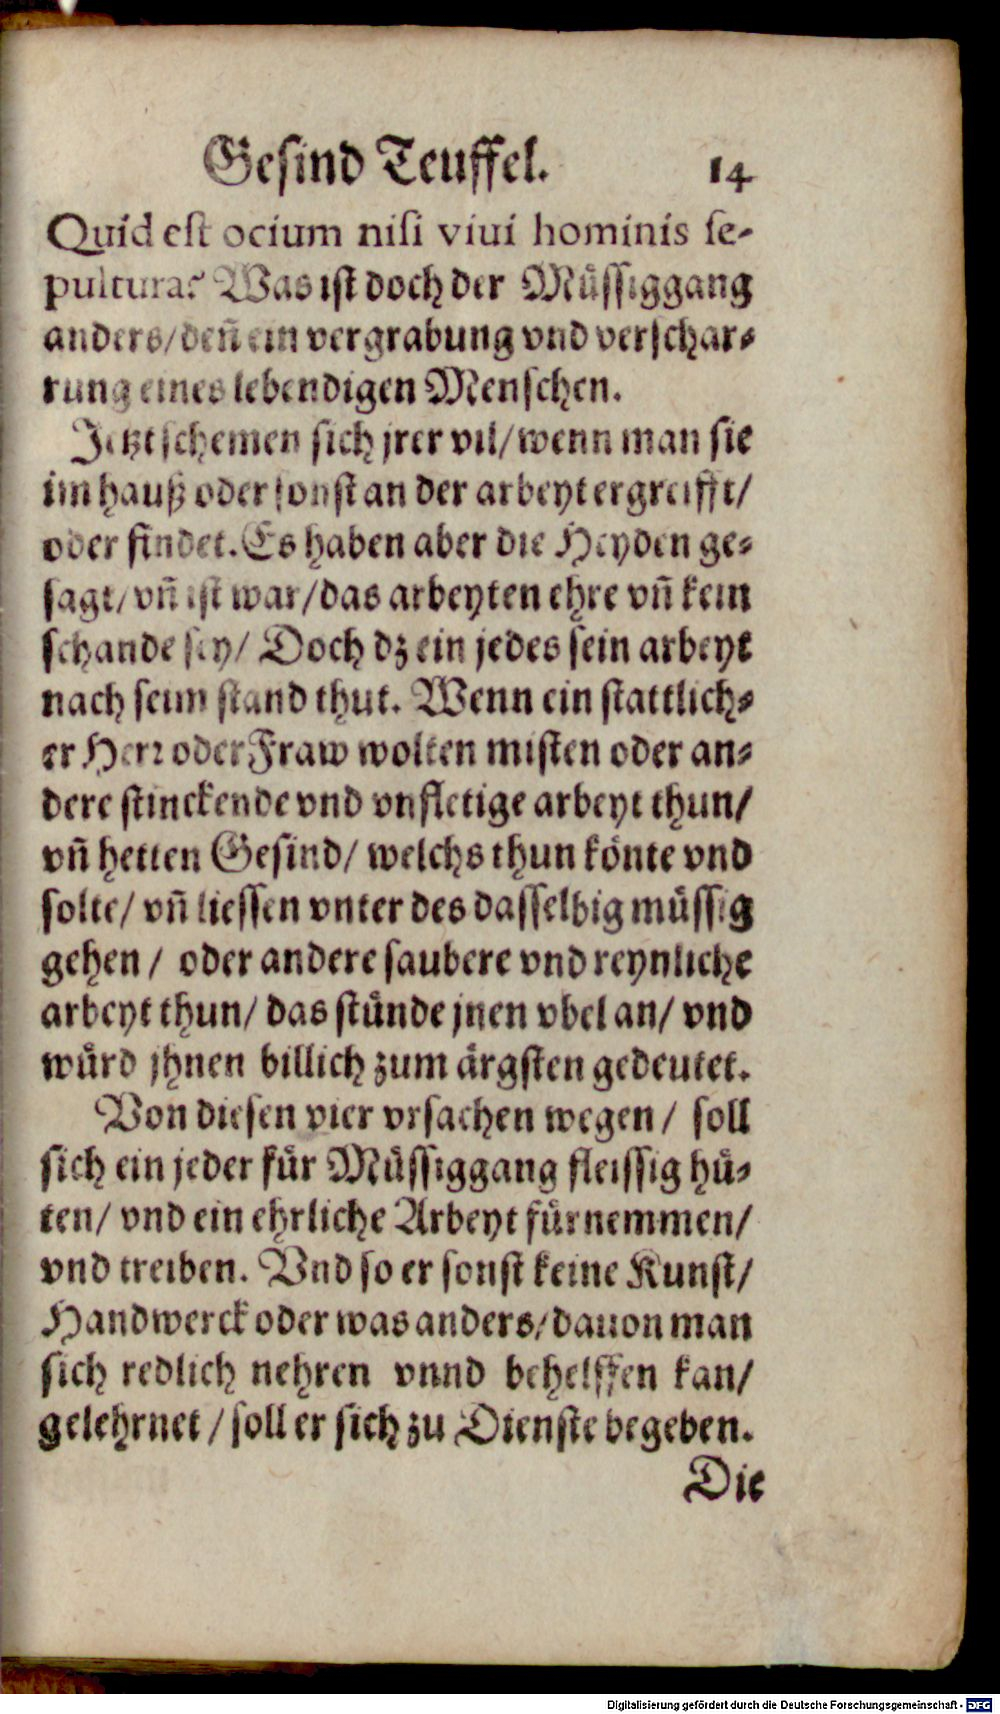 Gesind Teuffel. 14
Quid est ocium nisi viui hominis se-
pultura? Was ist doch der Müssiggang
anders/ deñ ein vergrabung vnd verschar-
rung eines lebendigen Menschen.
Jetzt schemen sich jrer vil/ wenn man sie
im hauß oder sonst an der arbeyt ergreifft/
oder findet. Es haben aber die Heyden ge-
sagt/ vñ ist war/ das arbeyten ehre vñ kein
schande sey/ Doch dz ein jedes sein arbeyt
nach seim stand thut. Wenn ein stattlich-
er Herr oder Fraw wolten misten oder an-
dere stinckende vnd vnfletige arbeyt thun/
vñ hetten Gesind/ welchs thun könte vnd
solte/ vñ liessen vnter des dasselbig müssig
gehen/ oder andere saubere vnd reynliche
arbeyt thun/ das stünde jnen vbel an/ vnd
würd jhnen billich zum ärgsten gedeutet.
Von diesen vier vrsachen wegen/ soll
sich ein jeder für Müssiggang fleissig hü-
ten/ vnd ein ehrliche Arbeyt fürnemmen/
vnd treiben. Vnd so er sonst keine Kunst/
Handwerck oder was anders/ dauon man
sich redlich nehren vnnd behelffen kan/
gelehrnet/ soll er sich zu Dienste begeben.
Die
Digitalisierung gefördert durch die Deutsche Forschungsgemeinschaft - DFG